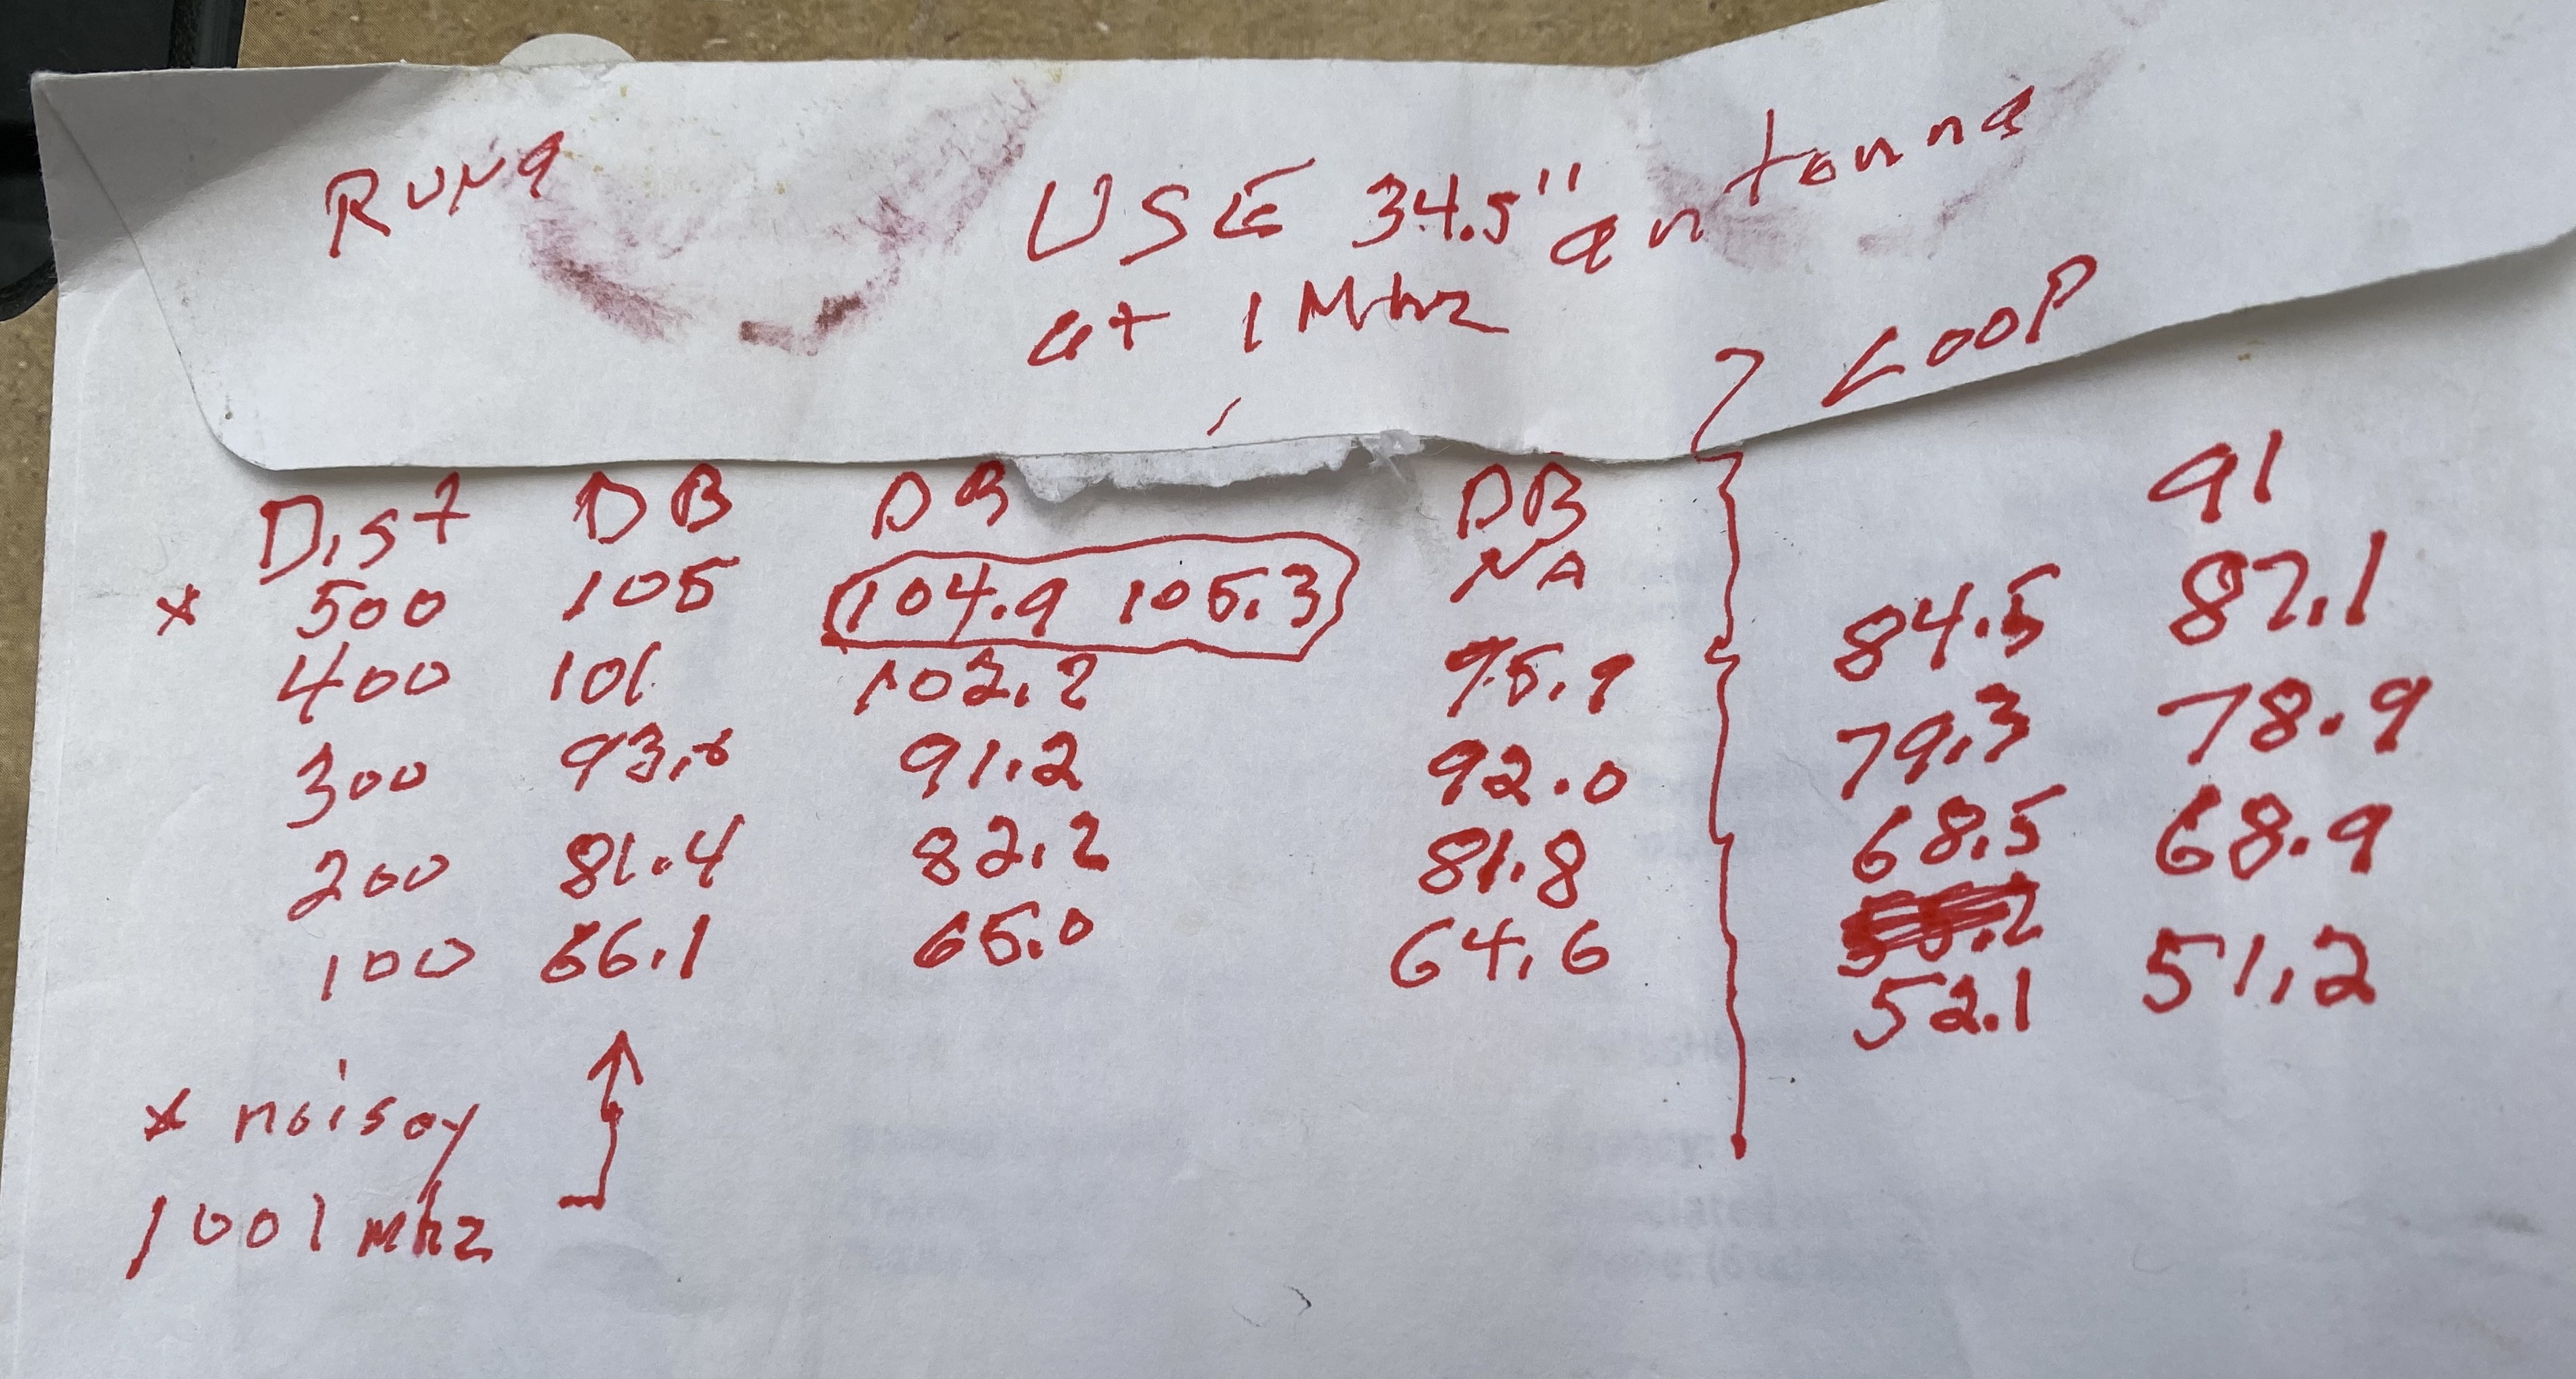 RUN9
USE 34.5" antenna
at 1 Mhz
LOOP
Dist DB DB DB 91
* 500 105 104.9 105.3 NA 84.5 87.1
400 101 102.2 95.9 79.3 78.9
300 93.8 91.2 92.0 68.5 68.9
200 81.4 82.2 81.8
100 66.1 65.0 64.6 52.1 51.2
* noisey
1001 Mhz